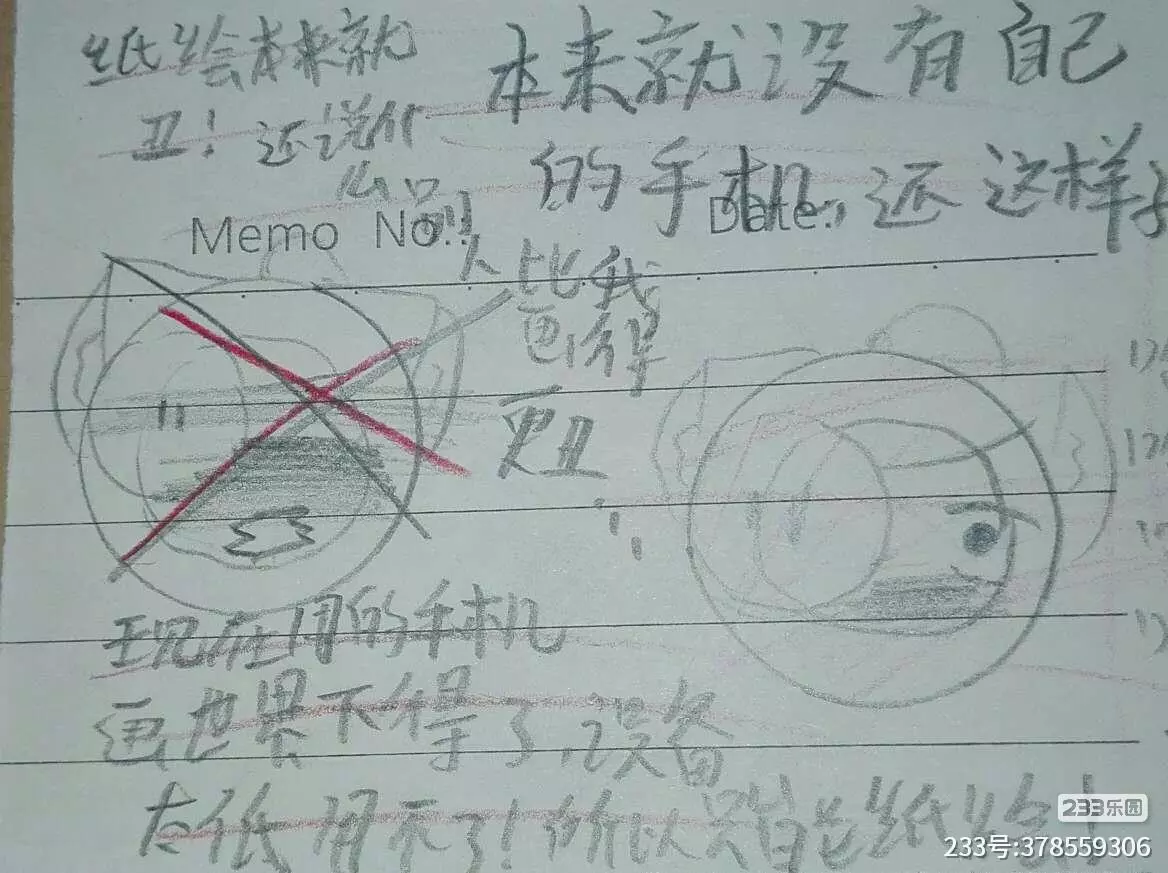 纸绘本来就
丑！还说什
么只
本来就没有自己
的手机，还这样子
Memo No.
Date.
人比我
画得
更丑
现在用的手机
画世界下得了，设备
太低用不了！所以只能是纸绘！
233乐园
233号:378559306